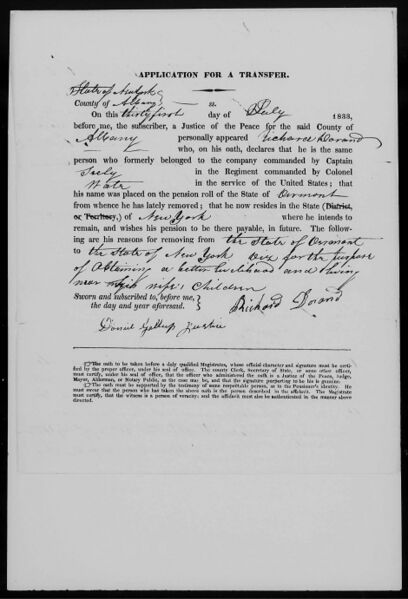 APPLICATION FOR A TRANSFER.
State of New York
County of Albany ss.
On this thirty first day of July 1833,
before me, the subscriber, a Justice of the Peace for the said County of
Albany personally appeared Richard Dorand
who, on his oath, declares that he is the same
person who formerly belonged to the company commanded by Captain
Seely in the Regiment commanded by Colonel
in the service of the United States; that
his name was placed on the pension roll of the State of Vermont
from whence he has lately removed; that he now resides in the State (District,
or Territory,) of New York where he intends to
remain, and wishes his pension to be there payable, in future. The follow-
ing are his reasons for removing from the State of Vermont
to the State of New York viz for the purpose
of Obtaining a better livelihood and living
near his wife's Children
Sworn and subscribed to, before me,
the day and year aforesaid.
Richard Dorand
Daniel Gallup Justice
The oath to be taken before a duly qualified Magistrate, whose official character and signature must be certi-
fied by the proper officer, under his seal of office. The county Clerk, Secretary of State, or some other officer,
must certify, under his seal of office, that the officer who administered the oath is a Justice of the Peace, Judge,
Mayor, Alderman, or Notary Public, as the case may be, and that the signature purporting to be his is genuine.
The oath must be supported by the testimony of some respectable person, as to the Pensioner's identity. He
must swear that the person who has taken the above oath is the person described in the affidavit. The Magistrate
must certify, that the witness is a person of veracity: and the affidavit must also be authenticated in the manner above
directed.